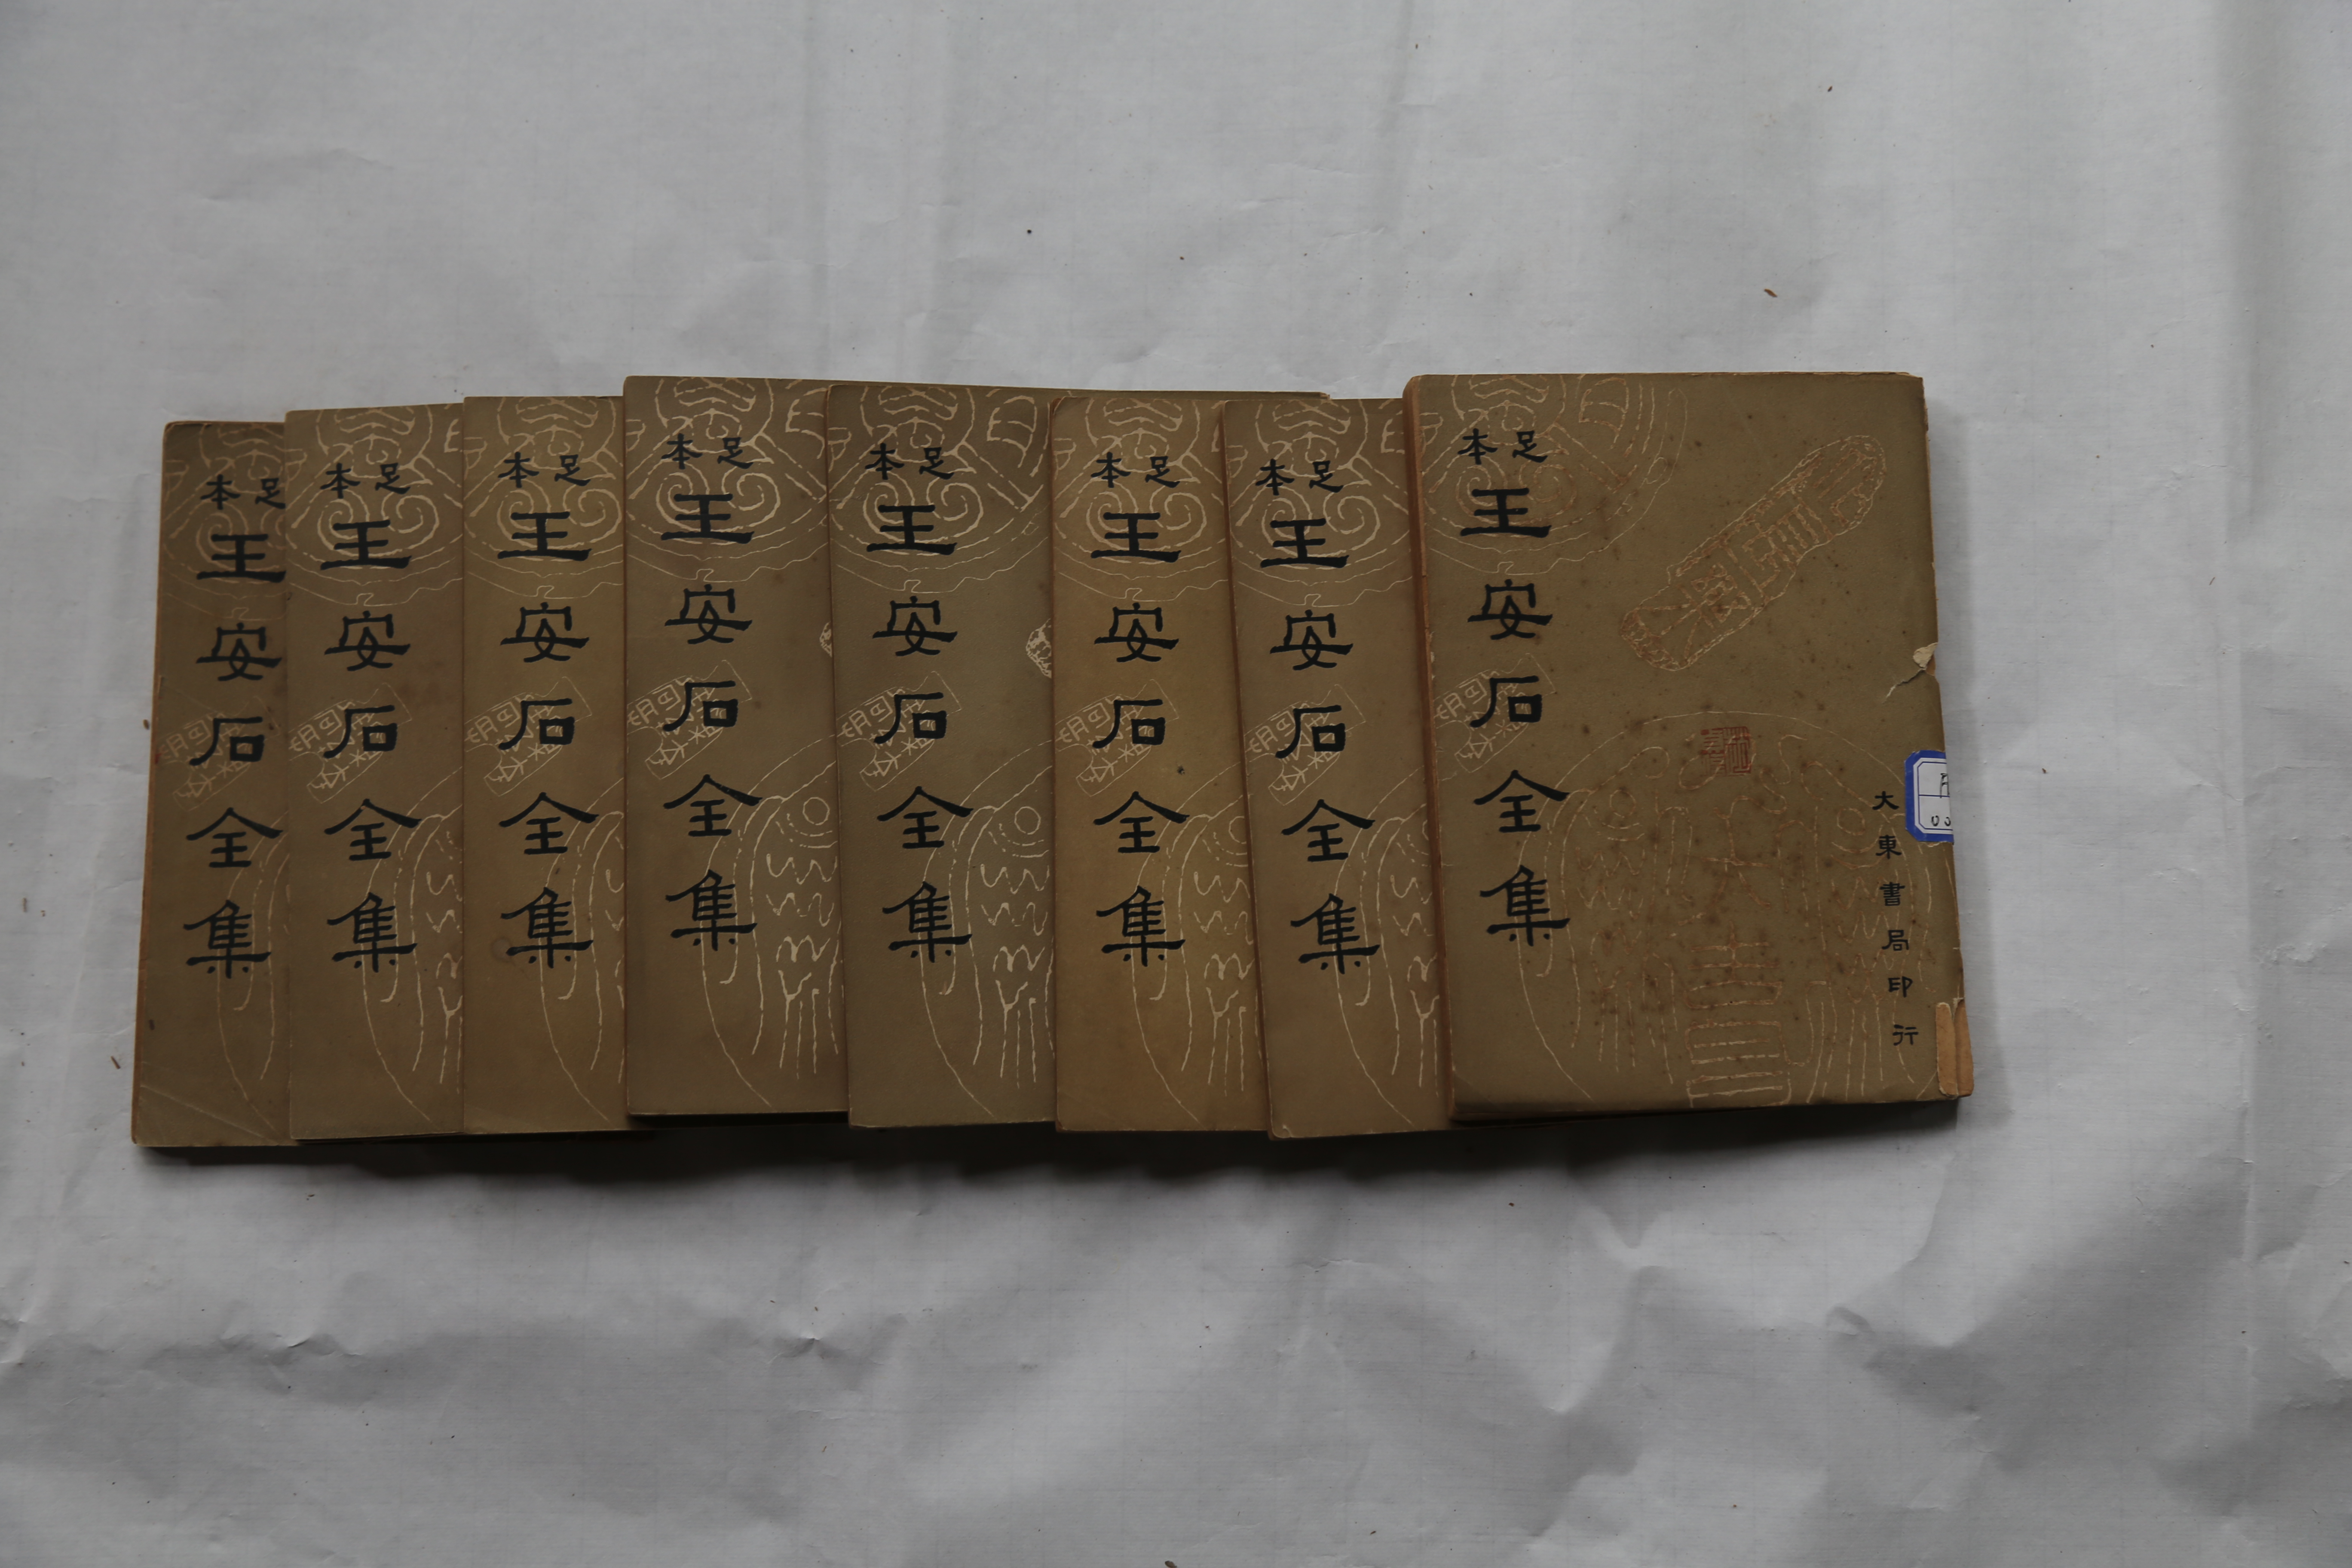 足本
王安石全集
足本
王安石全集
足本
王安石全集
足本
王安石全集
足本
王安石全集
足本
王安石全集
足本
王安石全集
足本
王安石全集
大東書局印行